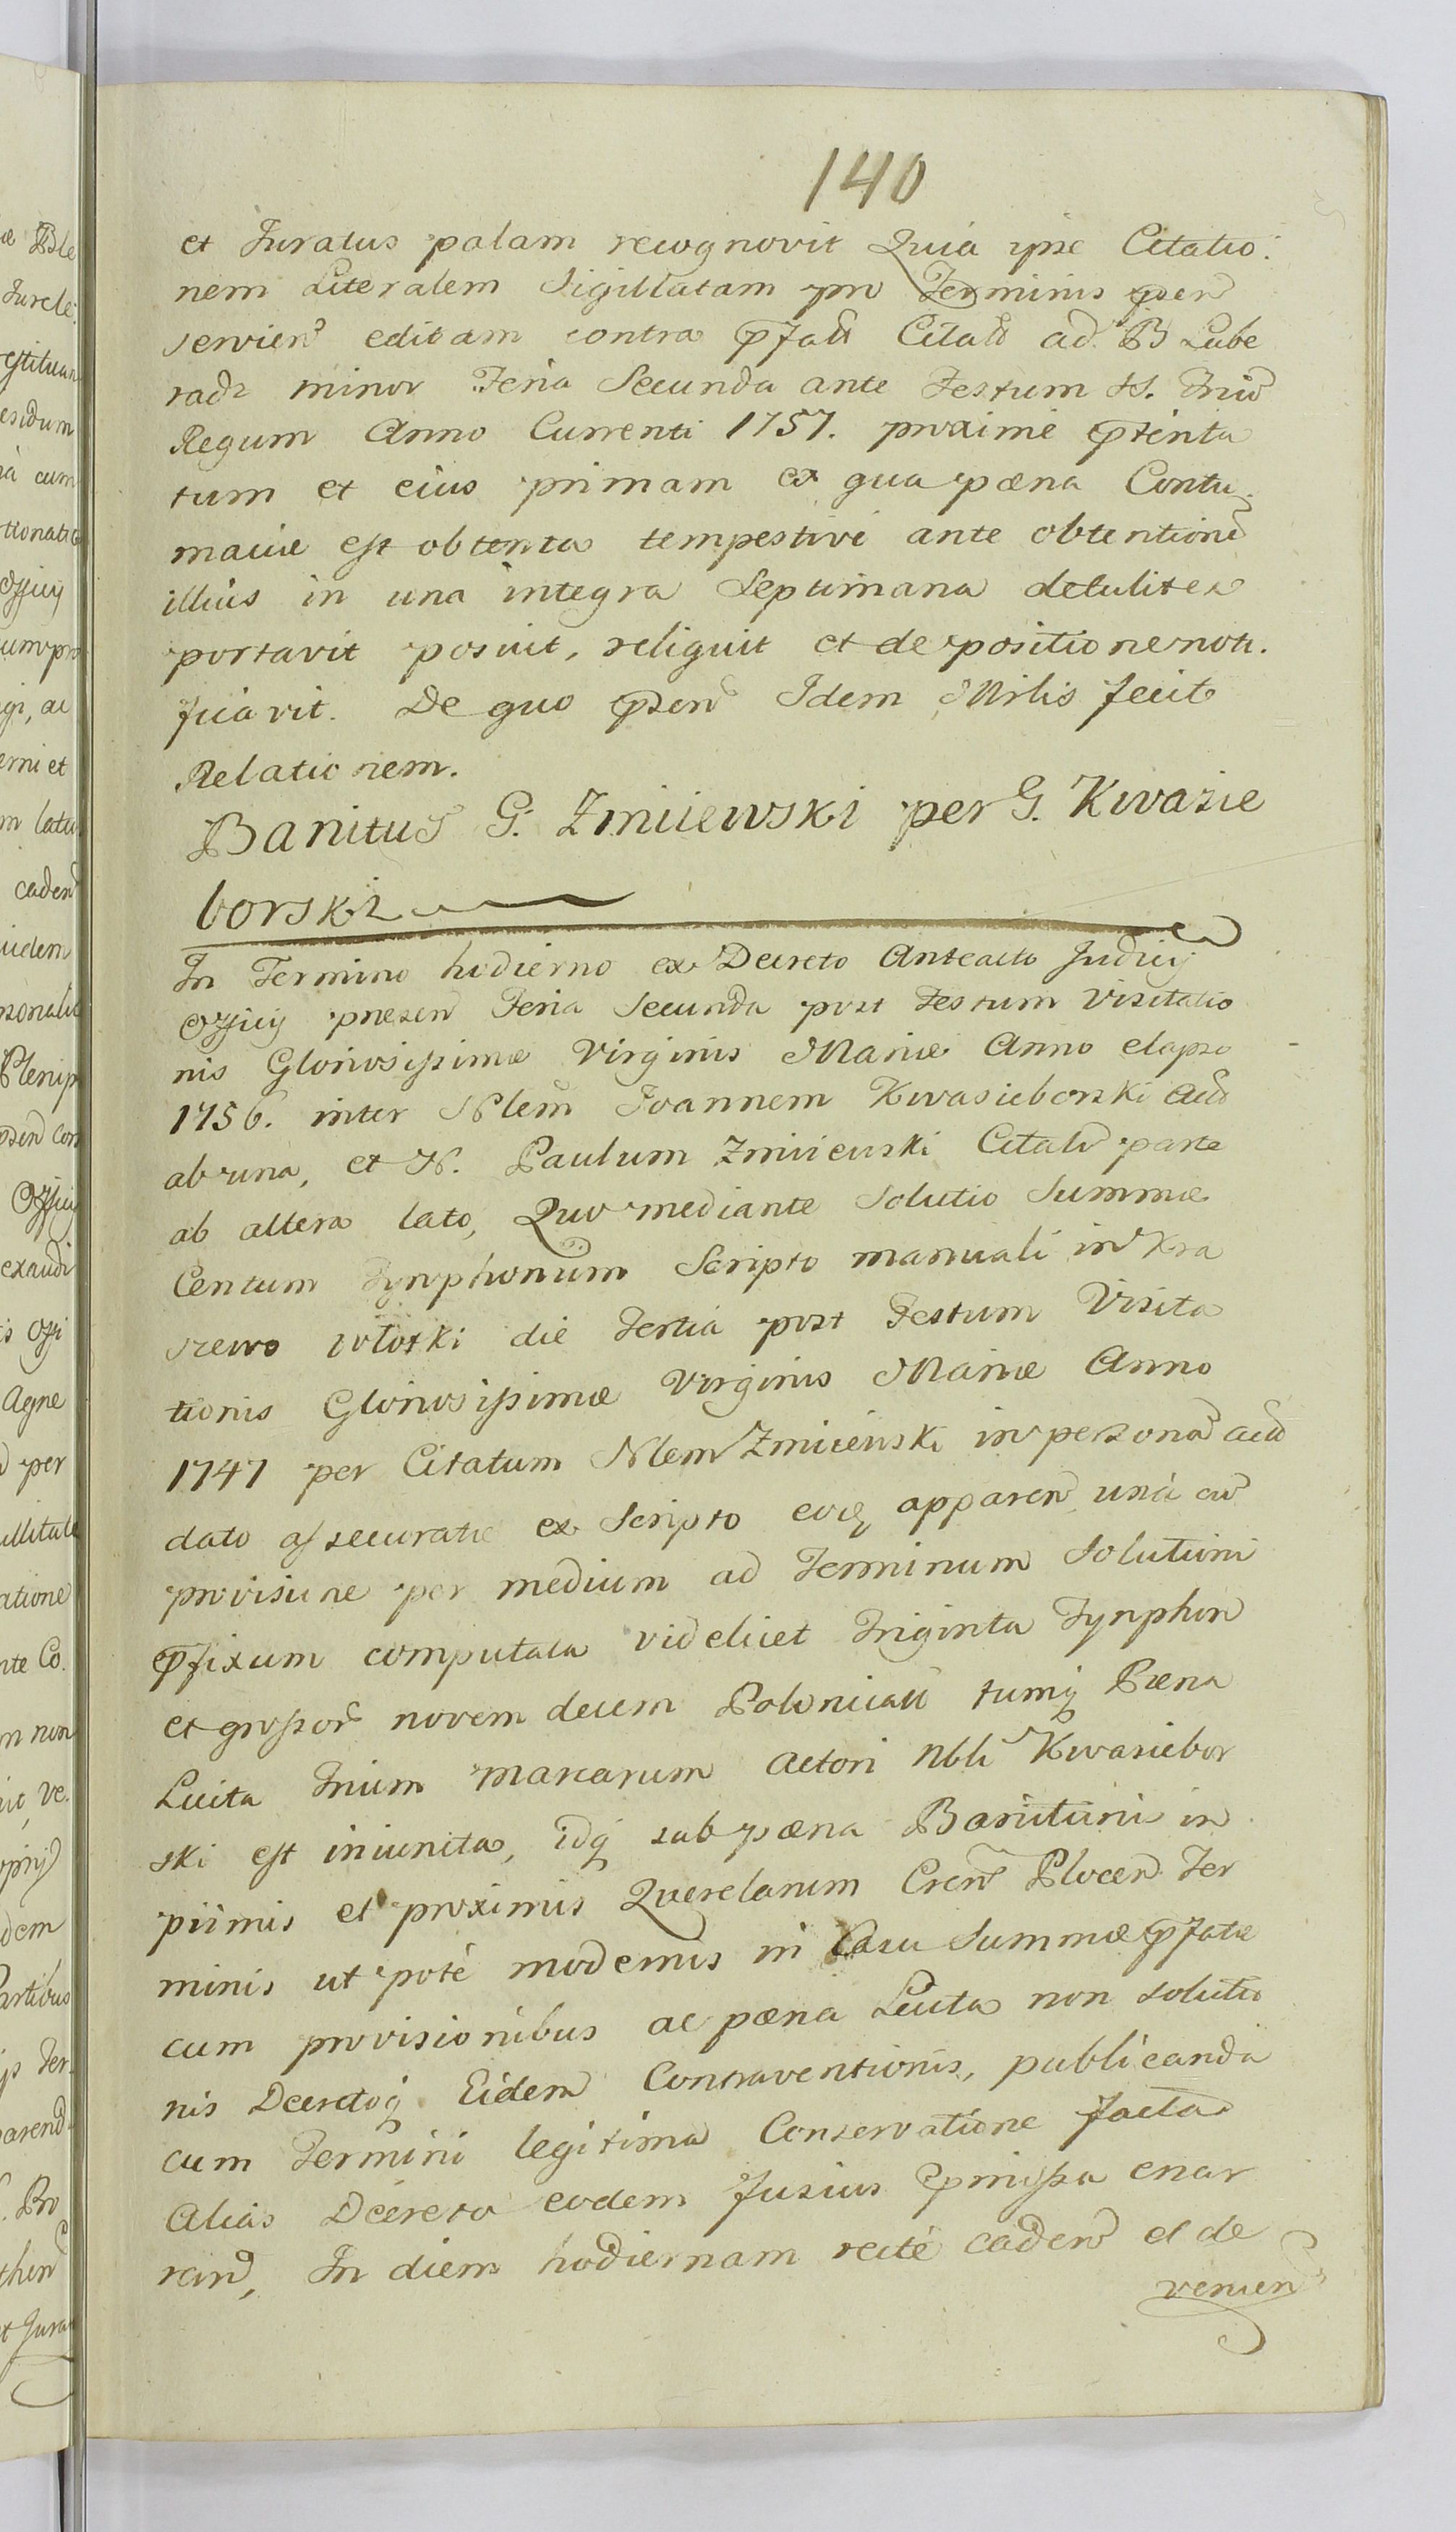 140
et Juratus palam recognovit Quia ipse Citatio:
nem Literalem Sigillatam pro Terminis pserń
servień editam contra pfatū Citatū ad B Lube
radz minor Feria Secunda ante Festum SS. Triū
Regum Anno Currenti 1757. proximè pterita
tum et eius primam ex qua pæna Contu.
maciæ est obtenta tempestivè ante obtentionē
illius in una integra Septimana detulit ex
portavit posuit, reliquit et de positione noti.
ficavit. De quo psenš Idem Mrlis fecit
Relationem.
Banitus G. Zmiiewski per G. Kwasie
borski
In Termino hodierno ex Decreto Anteacto Judicij
Officij præsen Feria Secunda post Festum Visitatio
nis Gloriosissimæ Virginis Mariæ Anno elapso
1756. inter Nlem Joannem Kwasieborski Actō
ab una, et N. Paulum Zmiiewski Citatū parte
ab altera lato, Quo mediante Solutio Summæ
Centum Tynphonum Scripto manuali in Kra
szewo włostki die Tertia post Festum Visita
tionis Gloriosissimæ Virginis Mariæ Anno
1747 per Citatum Nlem Zmiiewski in personā actō
dato assecuratæ ex Scripto eoq apparen unà cū
provisione per medium ad Terminum Solutioni
pfixum computata videlicet Triginta Tynphon
et grossor novem decem Polonicaū tumq Pæna
Luita Trium marcarum Actori Nbli Kwasiebor
ski est iniuncta, idq sub pæna Banitionis in
primis et proximis Querelarum Cren Plocen Ter
minis ut potè modernis in Casu Summæ pfatæ
cum provisionibus ac pæna Luita non solutio
nis Decretoq Eidem Contraventionis, publicanda
cum Termini legitima Conservatione facta
Alias Decreto eodem fusius pmissa enar
ran, In diem hodiernam rectè caden et de
venien